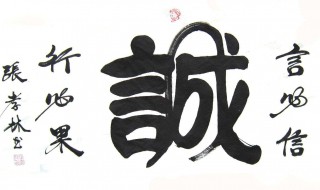 言必信
誠
行必果
張孝林书